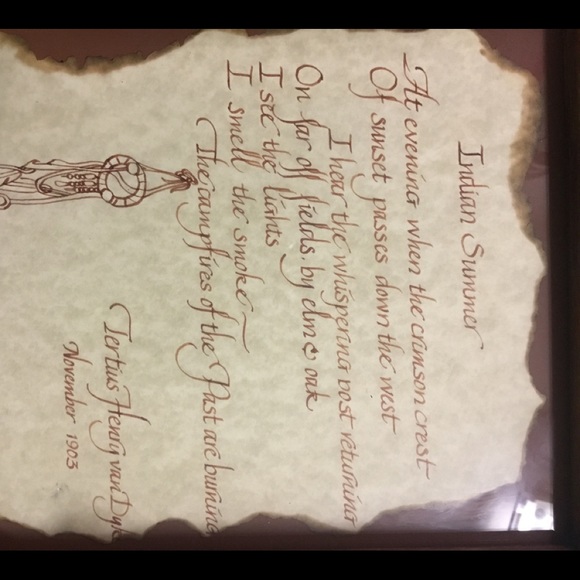 Indian Summer
At evening when the crimson crest
Of sunset passes down the west
I hear the whispering host returning
On far off fields, by elm & oak
I see the lights
I smell the smoke—
The campfires of the Past are burning
Tertius Henry van Dyke
November 1903